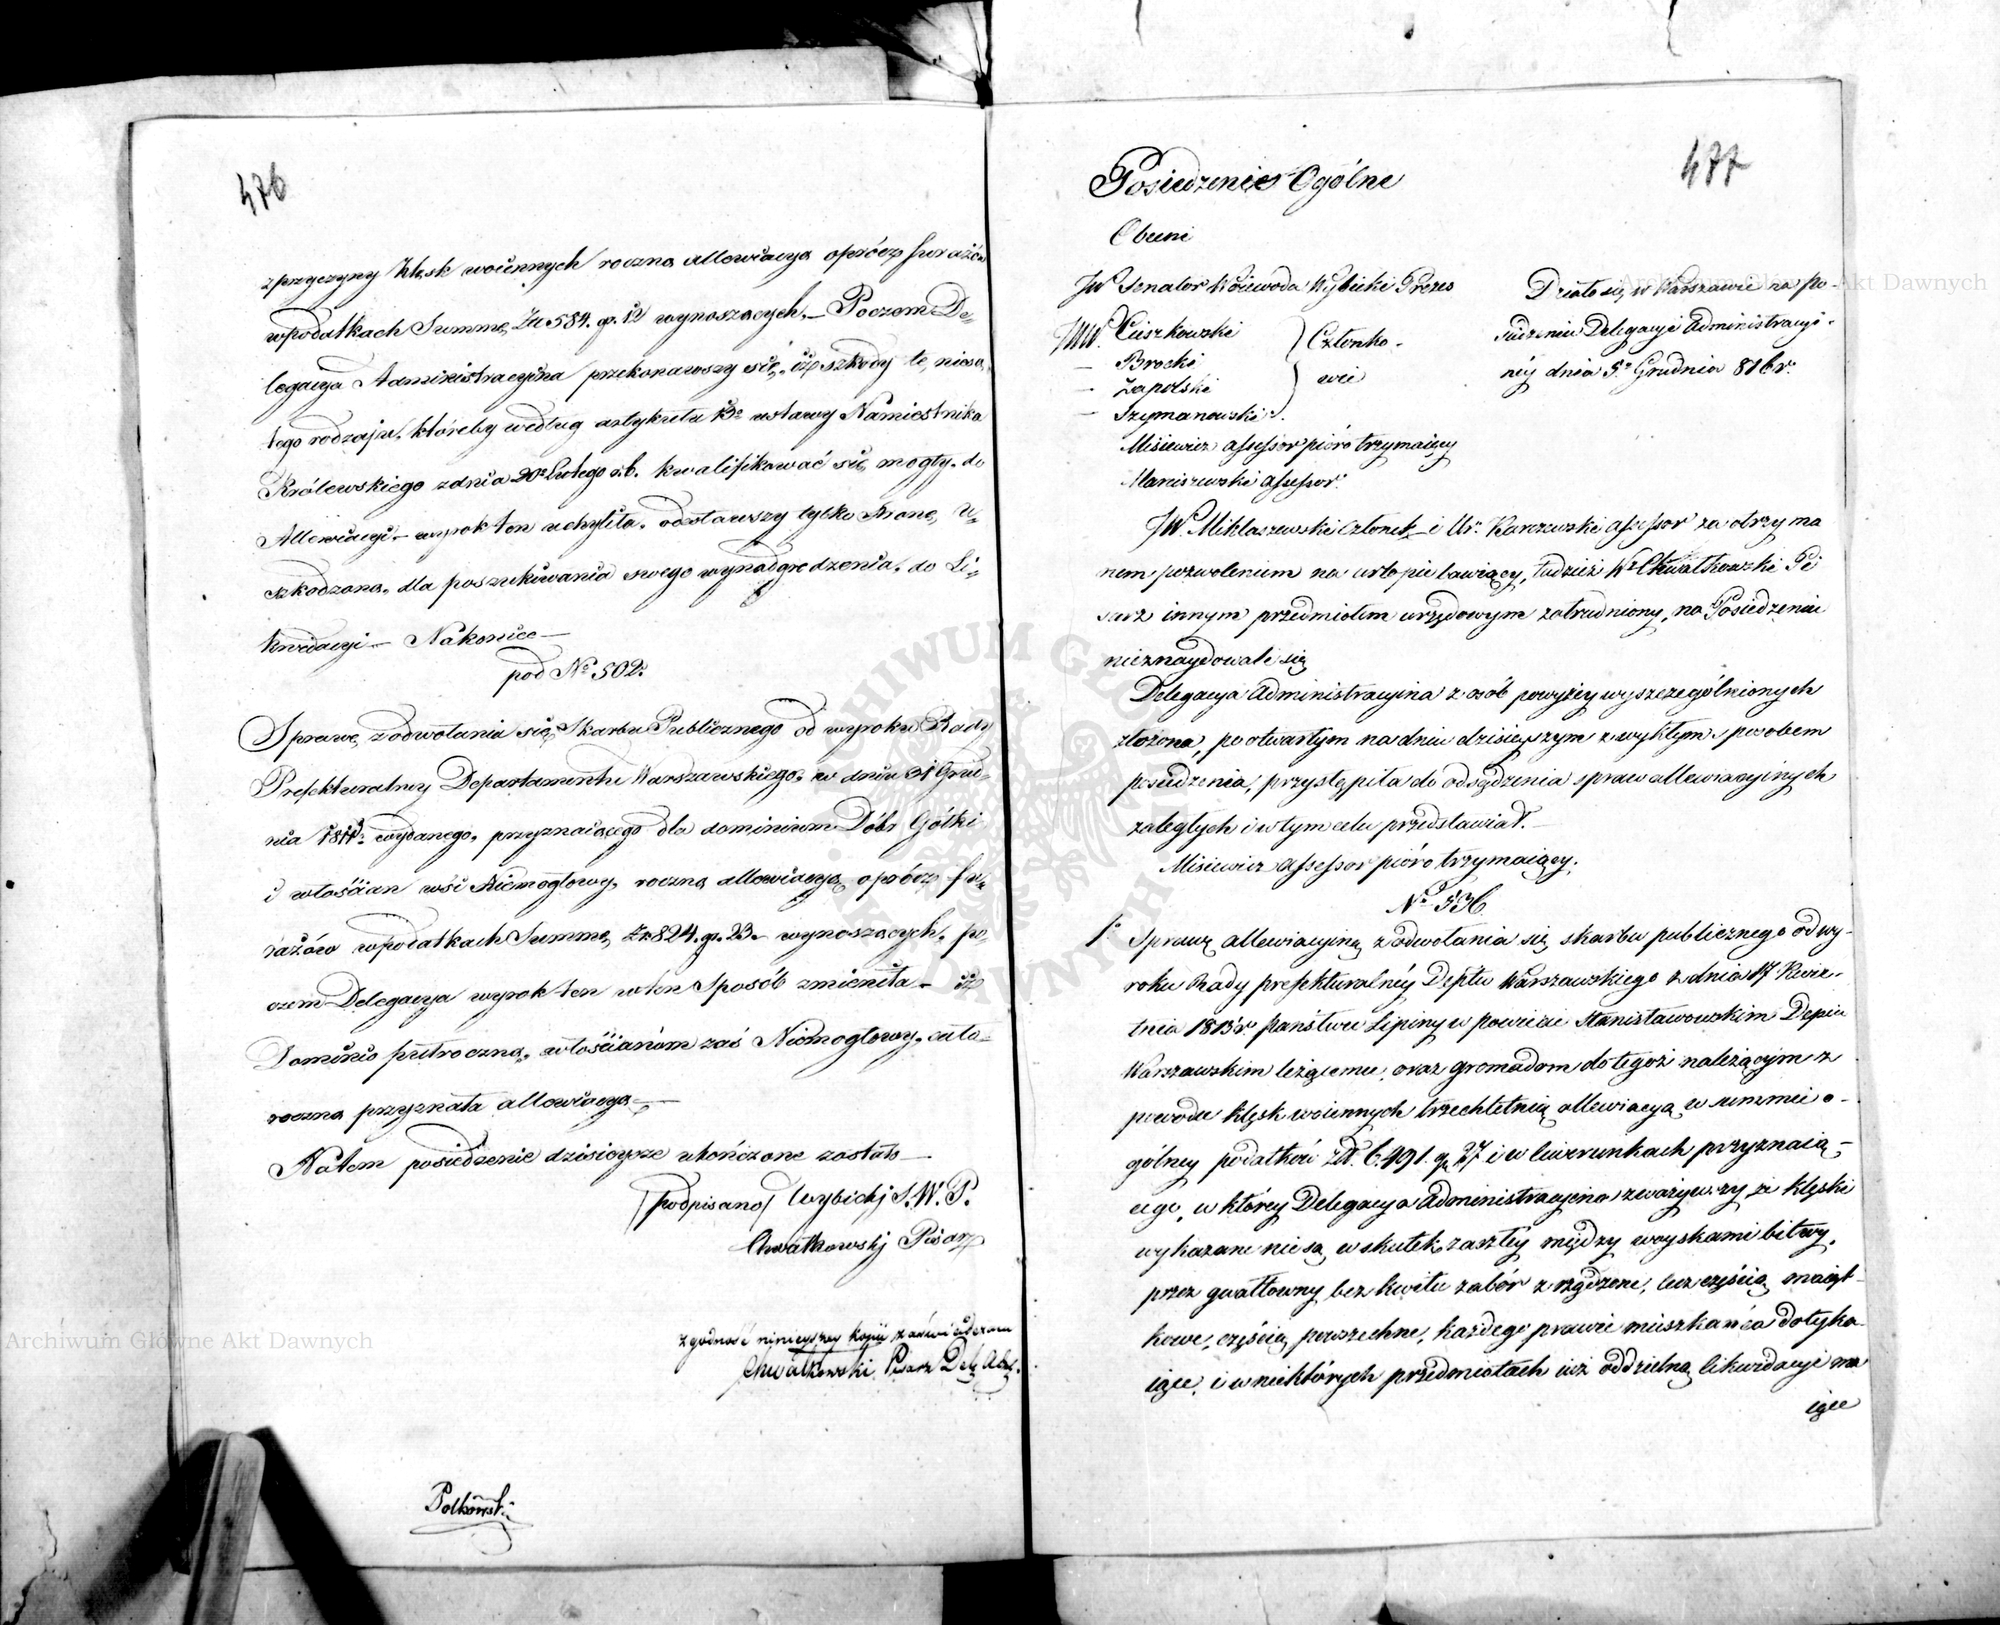 476
z przyczyny klęsk woiennych roczną allewiacyą oprócz furażów
w podatkach Summę Zł 584. gr. 12 wynoszących. — Poczem De-
legacya Administracyina przekonawszy się, iż szkody te nie są
tego rodzaju, któreby według artykułu 13º ustawy Namiestnika
Królewskiego z dnia 20º Lutego r. b. kwalifikować się mogły do
Allewiacyi — wyrok ten uchyliła, odesławszy tylko stronę u-
szkodzoną, dla poszukiwania swego wynadgrodzenia, do Li-
kwidacyi — Nakoniec —
pod Nº 502.
Sprawę z odwołania się Skarbu Publicznego od wyroku Rady
Prefekturalney Departamentu Warszawskiego, w dniu 31 Grud-
nia wydanego, przyznaiącego dla dominium Dóbr Gółki
i włościan wsi Niemogłowy, roczną allewiacyą oprócz fu-
rażów w podatkach Summę Zł 824. gr. 23. wynoszących, po-
czem Delegacya wyrok ten w ten Sposób zmieniła — iż
Dominio półroczną, włościanom zaś Niemogłowy, cało-
roczną przyznała allewiacyą —
Na tem posiedzenie dzisieysze ukończone zostało —
(podpisano) Wybicki S. W. P.
Chwałkowski Pisarz
Zgodność ninieyszey kopii zaświadczam
Chwałkowski Pisarz Del. Ad.
Polkowski
477
Posiedzenie Ogólne
Obecni
JW Senator Woiewoda Wybicki Prezes
JWW. Cieszkowski
— Brocki
— Zapolski
— Szymanowski J.
Członko-
wie
Misiewicz assessor pióro trzymaiący
Maniszewski assessor.
Działo się w Warszawie na po-
siedzeniu Delegacyi Administracyi-
néy dnia 5º Grudnia 816 r.
JW. Miklaszewski członek i Ur. Karczewski assessor za otrzyma
nem pozwoleniem na urlopie bawiący, tudzież W. Chwałkowski Pi
sarz innym przedmiotem urzędowym zatrudniony, na Posiedzeniu
nieznaydowali się
Delegacya Administracyina z osób powyżey wyszczególnionych
złożona, po otwartym na dniu dzisieyszym zwykłym sposobem
posiedzenia, przystąpiła do odsądzenia spraw allewiacyinych
zaległych i w tym celu przedstawiał. —
Misiewicz assessor pióro trzymaiący.
Nº 536
1º Sprawę allewiacyiną z odwołania się skarbu publicznego od wy-
roku Rady prefekturalnéy Deptu Warszawskiego z dnia 17 Kwie-
tnia 1813 r. państwu Lipiny w powiecie Stanisławowskim Depcie
Warszawskim leżącemu, oraz gromadom do tegoż należącym z
powodu klęsk woiennych trzechletnią allewiacyą w summie o-
gólney podatków Zł. 6,491. gr 27 i w liwerunkach przyznaią-
cego, w którey Delegacya Administracyina zważywszy że klęski
wykazane nie są w skutek zaszłey między woyskami bitwy,
przez gwałtowny bez kwitu zabór zrządzone, lecz częścią maiąt-
kowe, częścią powszechne, każdego prawie mieszkańca dotyka-
iące, i w niektórych przedmiotach iuż oddzielną likwidacyi ma
iące